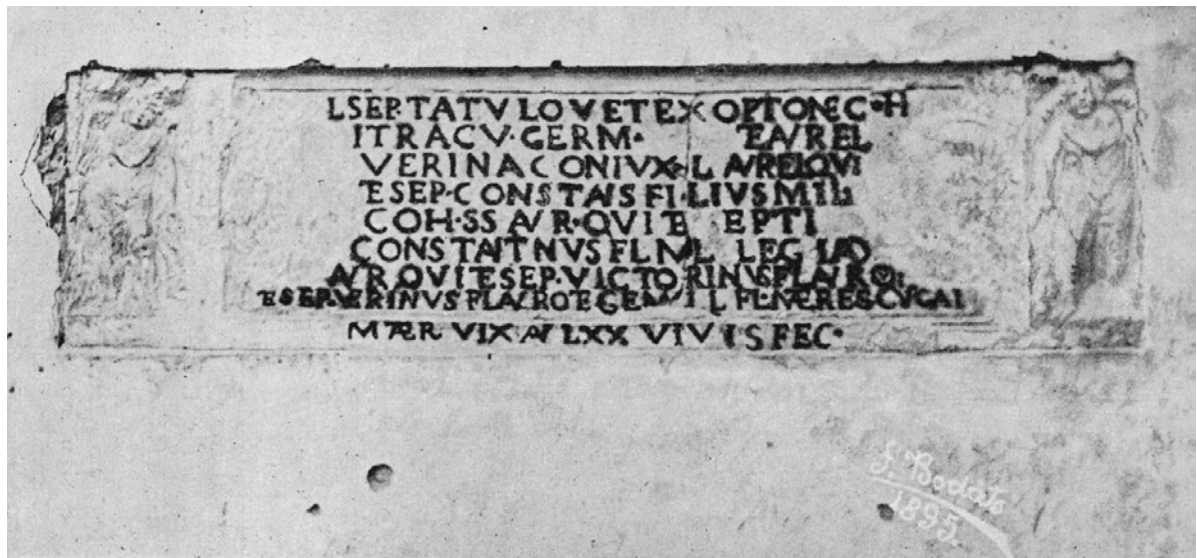 L·SEP·TATVLO VET EX OPTONE C·H
ITRACV·GERM· ET AVREL
VERINA CONIVX· L AVREL QVI
ET SEP·CONSTANS FI·LIVS MIL·
COH·SS AVR·QVI ET EPTI
CONSTANTNVS FL ML LEG I AD
AVR QVI ET SEP·VICTORINVS FL AVR Q
ET SEP VERINVS FL
MATER VIX AN LXX VIVIS FEC·
1895